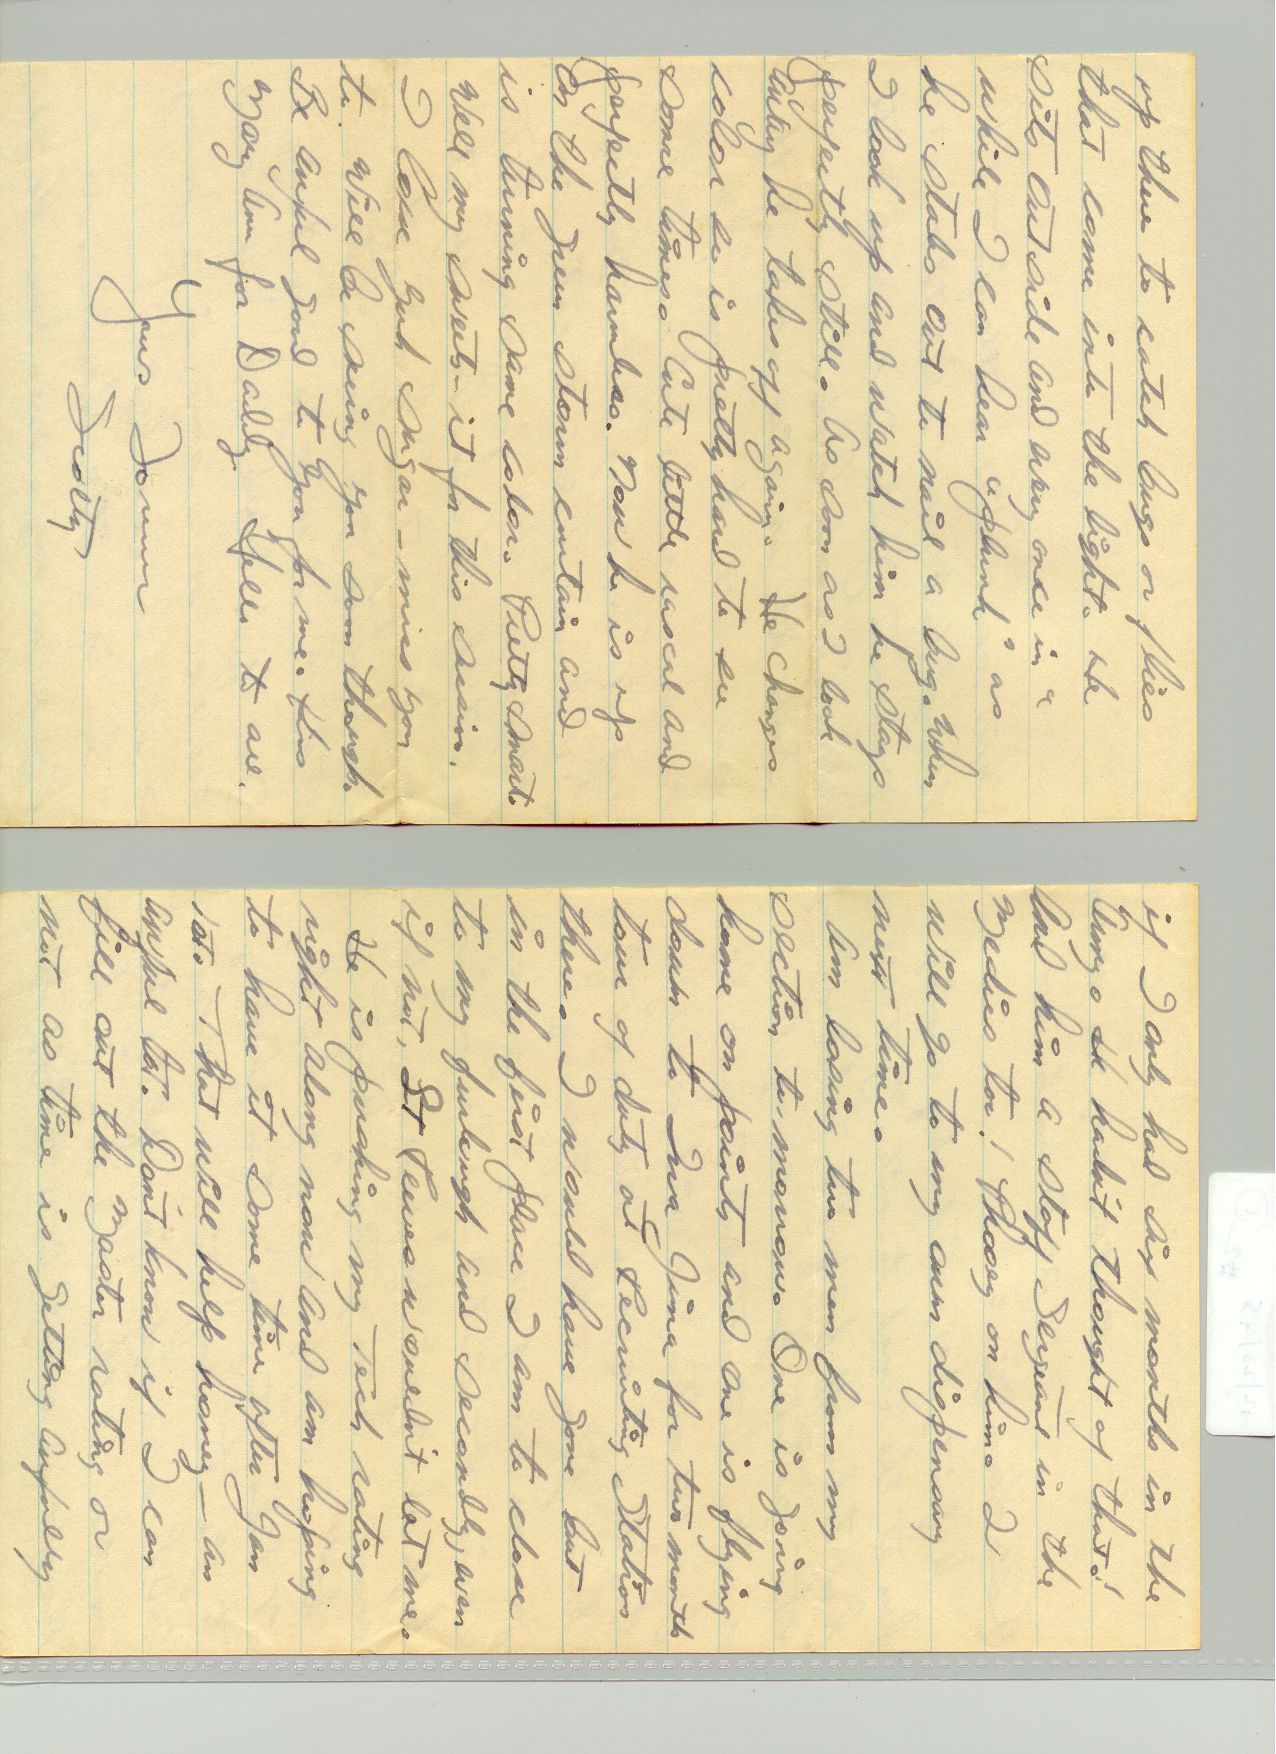 up there to catch bugs or flies
that come into the light. He
sits outside and every once in a
while I can hear "plunk" as
he stabs out to nail a bug. When
I look up and watch him he stays
perfectly still. As soon as I look
away he takes off again. He changes
color so is pretty hard to see
some times. Cute little rascal and
perfectly harmless. Now he is up
on the green storm curtain and
is turning same color. Pretty smart.
Well my sweets - it for this session.
I love you Sugar - miss you
to. Will be seeing you soon though.
Be awful good to you for me. Kiss
Mary Ann for Daddy. Hello to all.
Yours Forever
Scotty
if I only had six months in the
Army. She hadn't thought of that!
Had him a Staff Sergeant in the
Medics too! Phooey on him. I
will go to my own dispensary
next time.
Am losing two men from my
section to-morrow. One is going
home on points and one is flying
down to Iwo Jima for two month
tour of duty at Recruiting Station
there. I would have gone but
in the first place I am to close
to my furlough and secondly, even
if not, Lt wouldn't let me.
He is pushing my Tech rating
right along now and am hoping
to have it some time after Jan
1st. That will help honey - an
awful lot. Don't know if I can
fill out the Master rating or
not as time is getting awfully